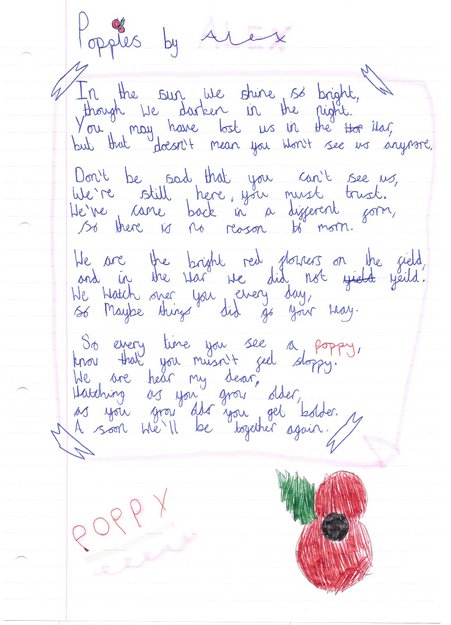 Poppies by Alex
ALEX
In the sun we shine so bright,
though we darken in the night.
You may have lost us in the war,
but that doesn't mean you won't see us anymore.
Don't be sad that you can't see us,
We're still here, you must trust.
We've came back in a different form,
so there is no reason to morn.
We are the bright red flowers on the field,
and in the war we did not yeild yeild.
We watch over you every day,
so maybe things did go your way.
So every time you see a poppy,
know that you musn't feel sloppy.
We are hear my dear,
Watching as you grow older,
as you grow you get bolder.
A soon we'll be together again.
POPPY